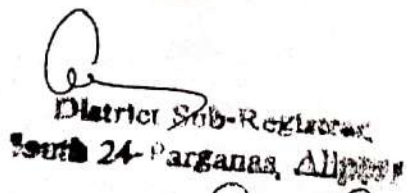 District Sub-Registrar
South 24-Parganas, Alipore